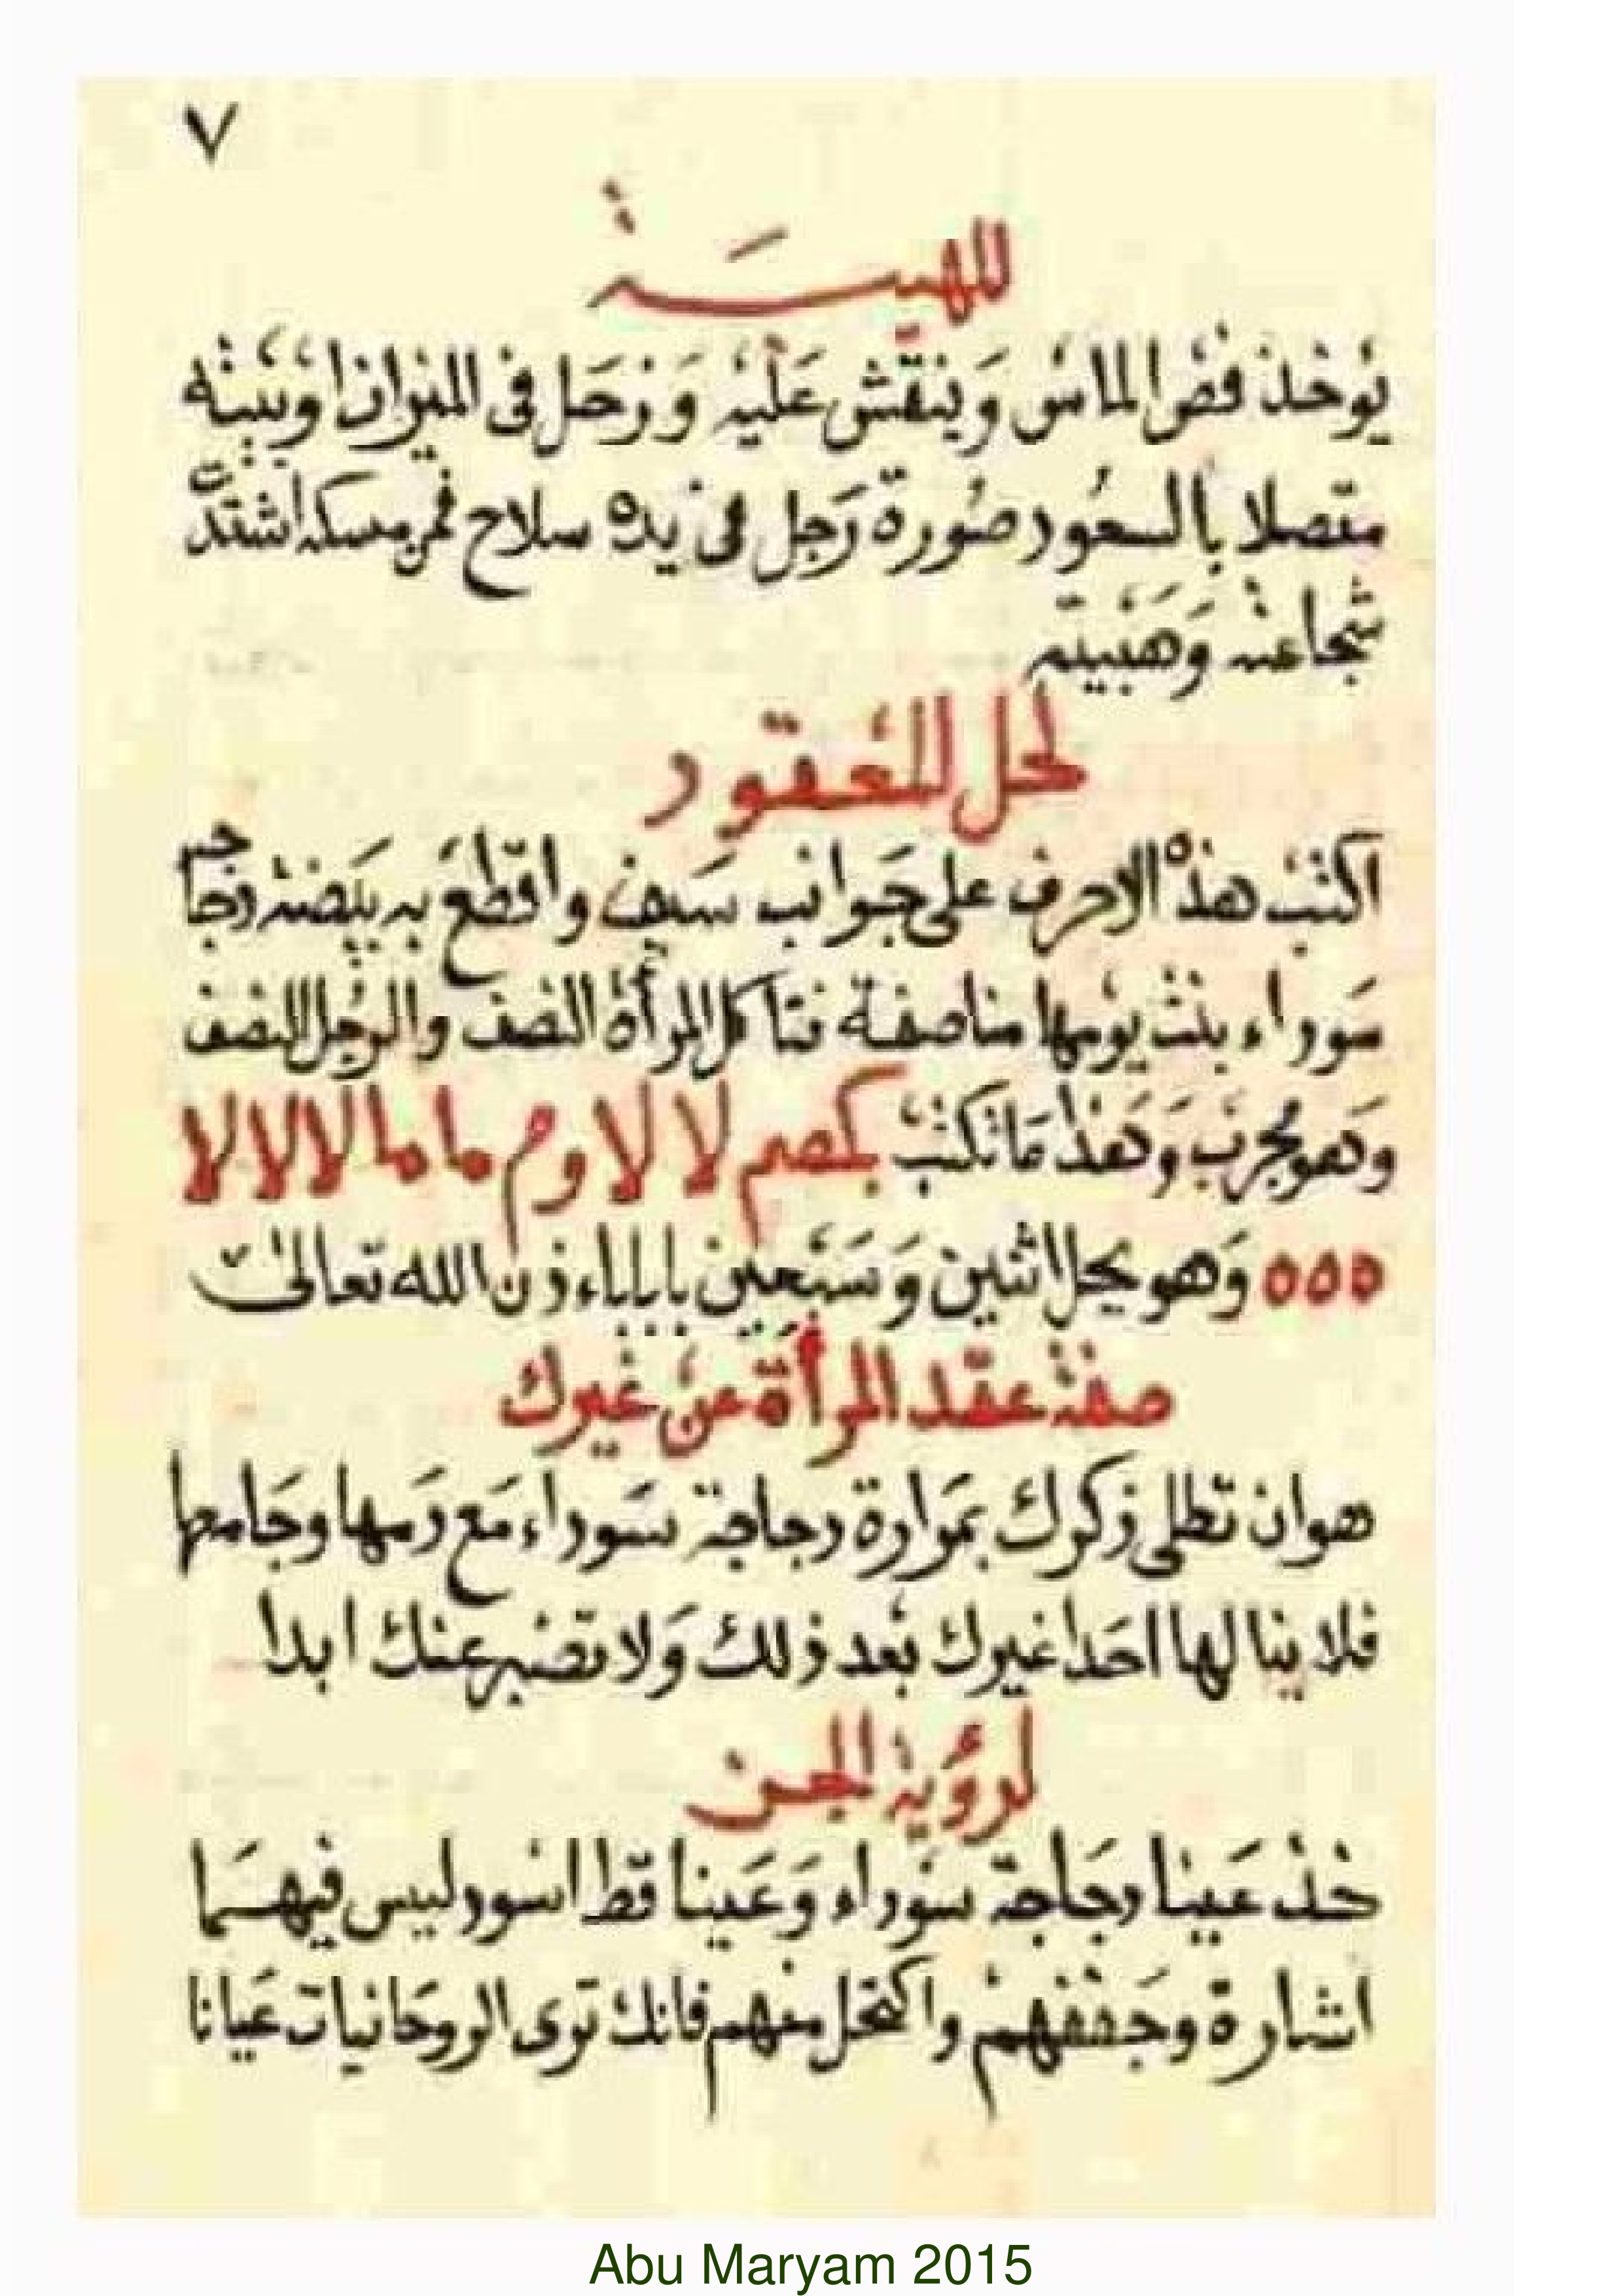 ٧
للهيبة
يوخذ فص الماس وينقش عليه وزحل في الميزان اوبيته
متصلا بالسعود صورة رجل في يده سلاح فمن مسكه اشتد
شجاعته وهيبته
لحل المعقود
اكتب هذه الاحرف على جوانب سيف واقطع به بيضة دجاجه
سوداء بنت يومها مناصفة فتاكل المرأة النصف والرجل النصف
وهو مجرب وهذا ما تكتب كصم لا لا وم ما ما لا لا لا
ەەە وهو يحل اثنين وسبعين بابا باءذن الله تعالى
صفة عقد المرأة عن غيرك
هو ان تطلي ذكرك بمرارة دجاجة سوداء مع دمها وجامعها
فلا ينالها احدا غيرك بعد ذلك ولا تصبر عنك ابدا
لرؤية الجن
خذ عينا دجاجة سوداء وعينا قط اسود ليس فيهما
اشارة وجففهم واكتحل منهم فانك ترى الروحانيات عيانا
Abu Maryam 2015